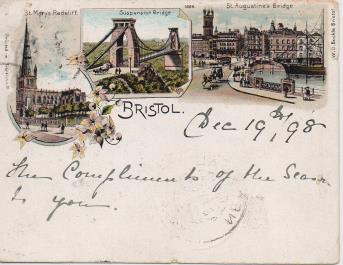 St. Mary's Redcliff.
Suspension Bridge
1894
St. Augustine's Bridge.
BRISTOL.
Dec 19th, 98
The Compliments of the Season
to you.